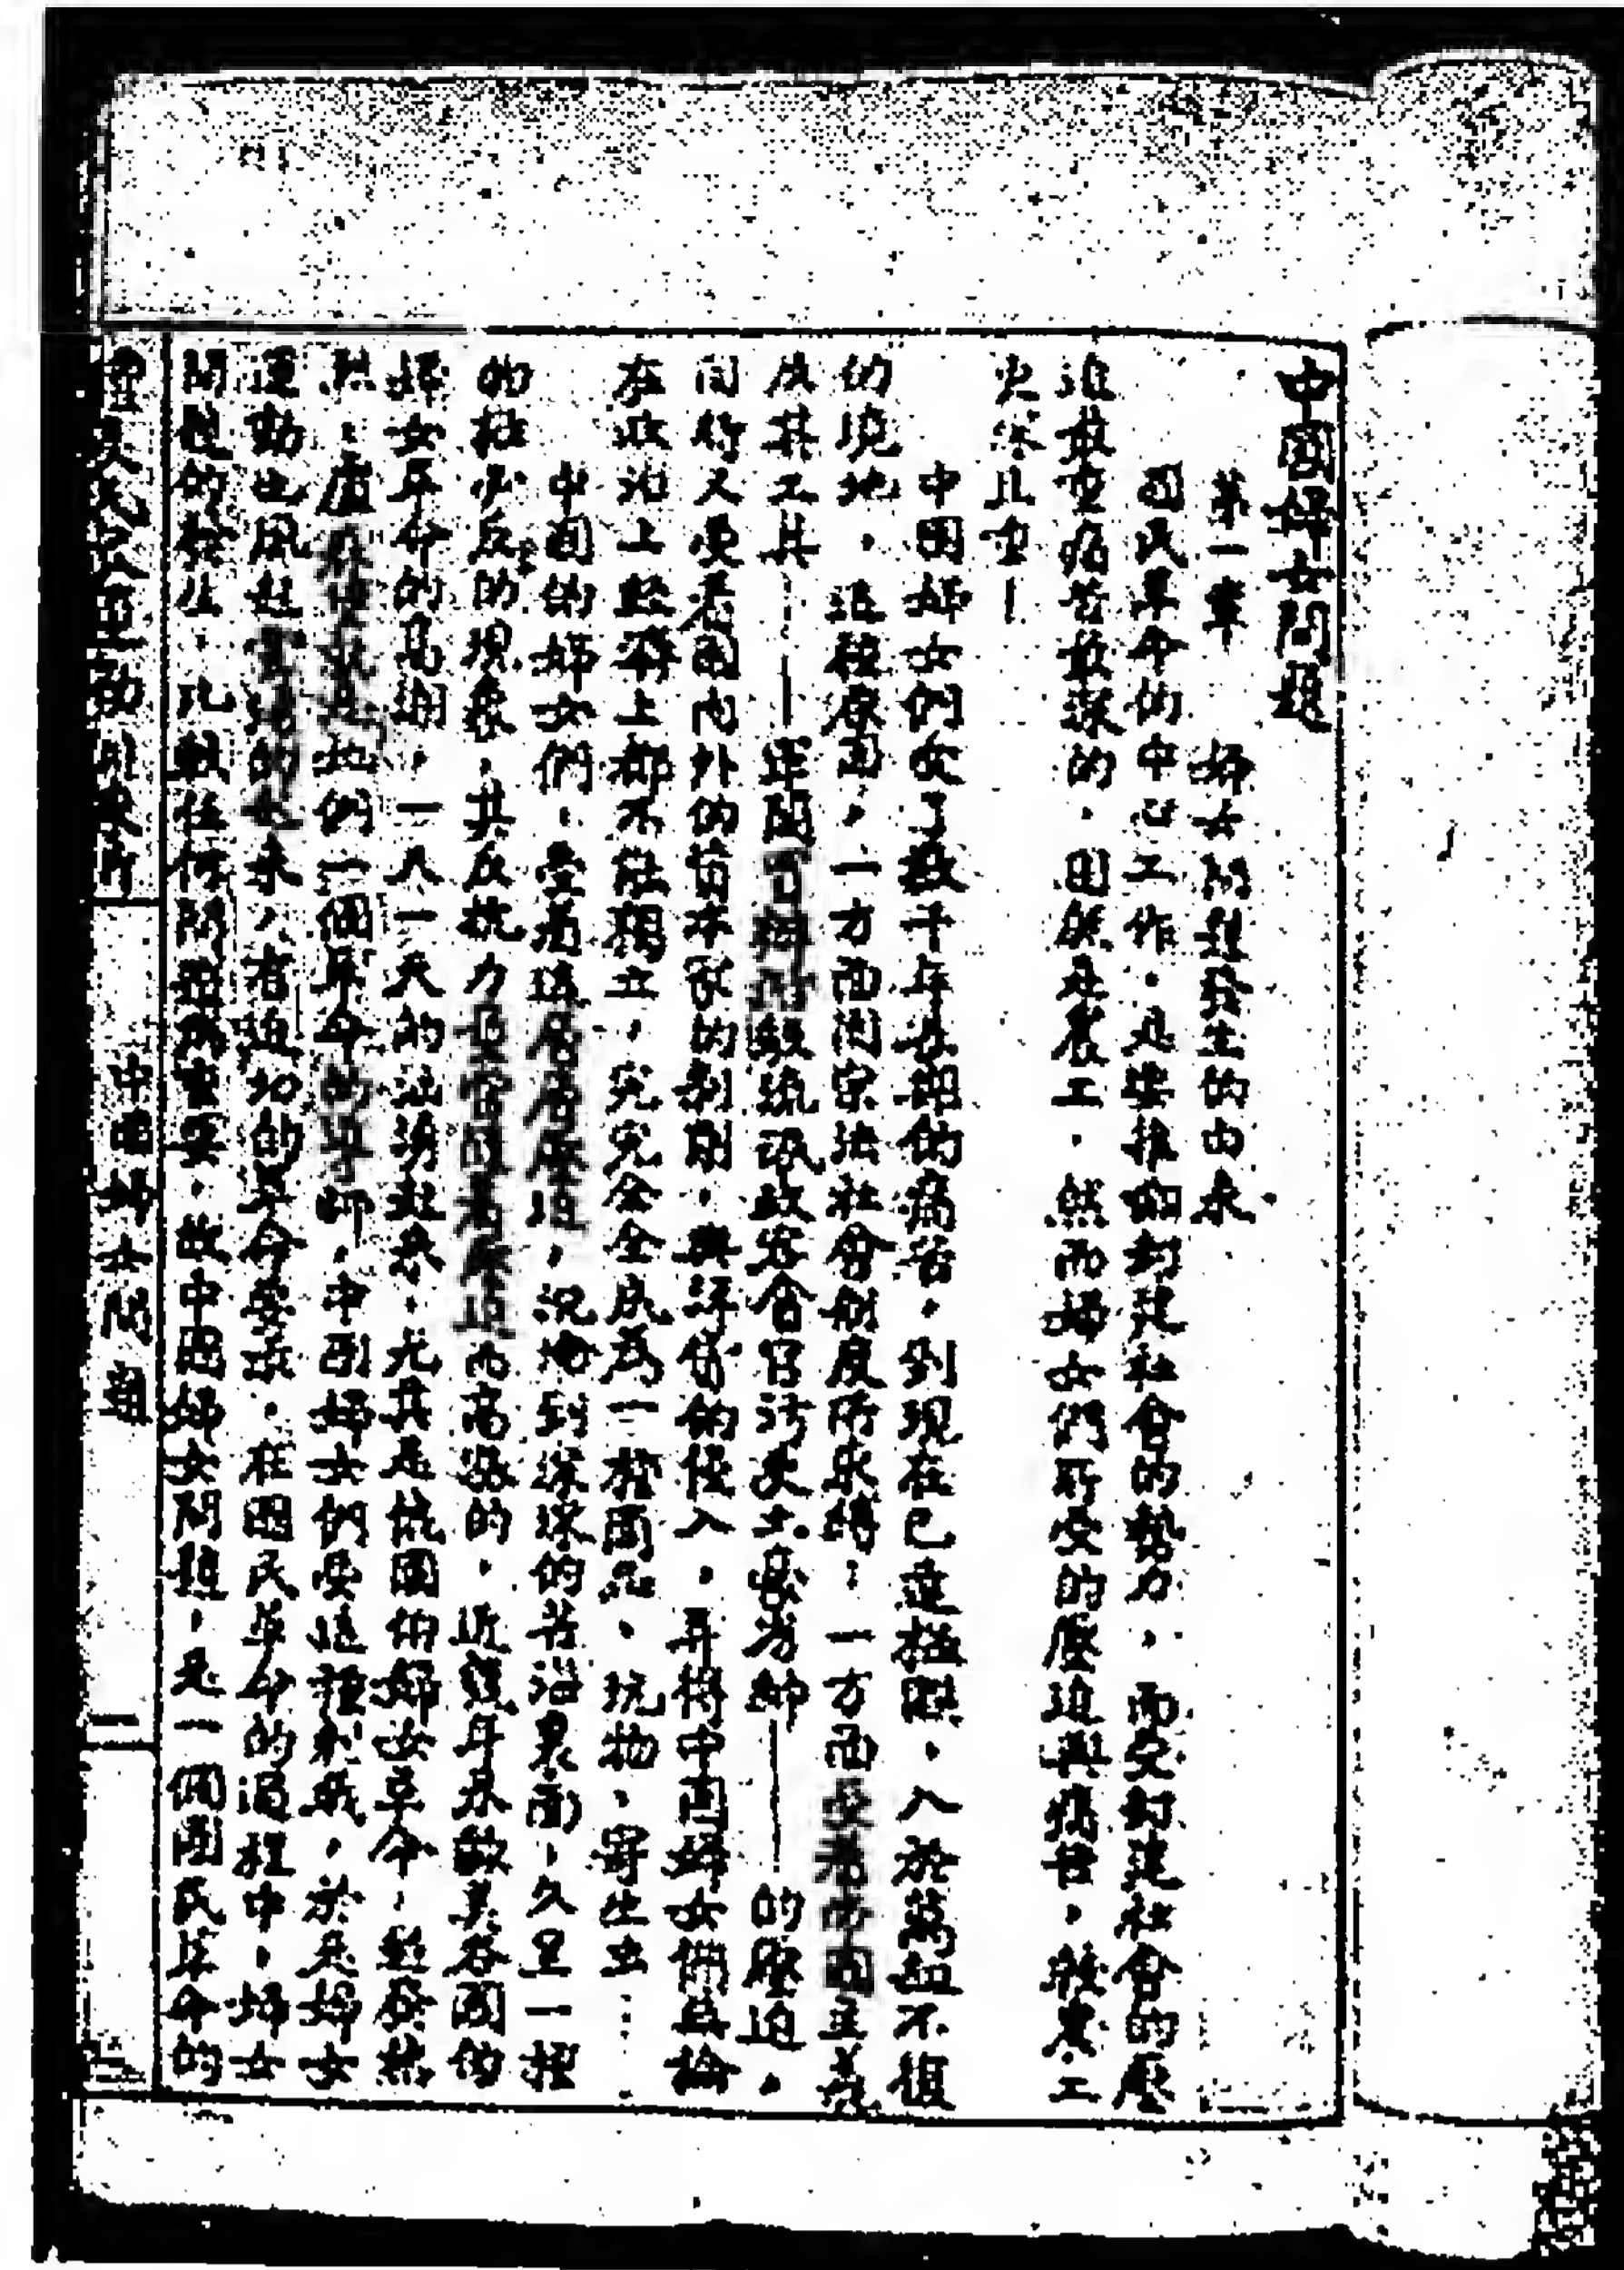 中國婦女問題
第一章 婦女問題發生的由來
國民革命的中心工作,是要推翻封建社會的勢力,而受封建社會的壓
迫最重痛苦最深的,固然是農工,然而婦女們所受的壓迫與痛苦,較農工
更深且重—
中國婦女們受了數千年長期的痛苦,到現在已達極點,入於萬劫不復
的境地,這種原因,一方面因宗法社會制度所束縛;一方面受着帝國主義
及其工具——軍閥買辦階級流氓政客貪官污吏土豪劣紳——的壓迫,
同時又受着國內外的資本家的剝削,與洋貨的侵入,再將中國婦女們無論
在政治上經濟上都不能獨立,完完全全成為一種商品、玩物、寄生虫……
中國的婦女們,受着這層層壓迫,沉淪到深深的苦海裏面,久呈一種
的極少反的現象,其反抗力是當隨着壓迫而高漲的,近幾年來歐美各國的
婦女革命的高潮,一天一天的汹湧起來,尤其是俄國的婦女革命,蓬蓬然
她們一個革命的導師,中國婦女們受這種刺戟,於是婦女
運動也風起雲湧的起來,有迫切的革命要求,在國民革命的過程中,婦女
問題的發生,比較任何問題為重要,故中國婦女問題,是一個國民革命的
農民運動訓練所
中國婦女問題
一